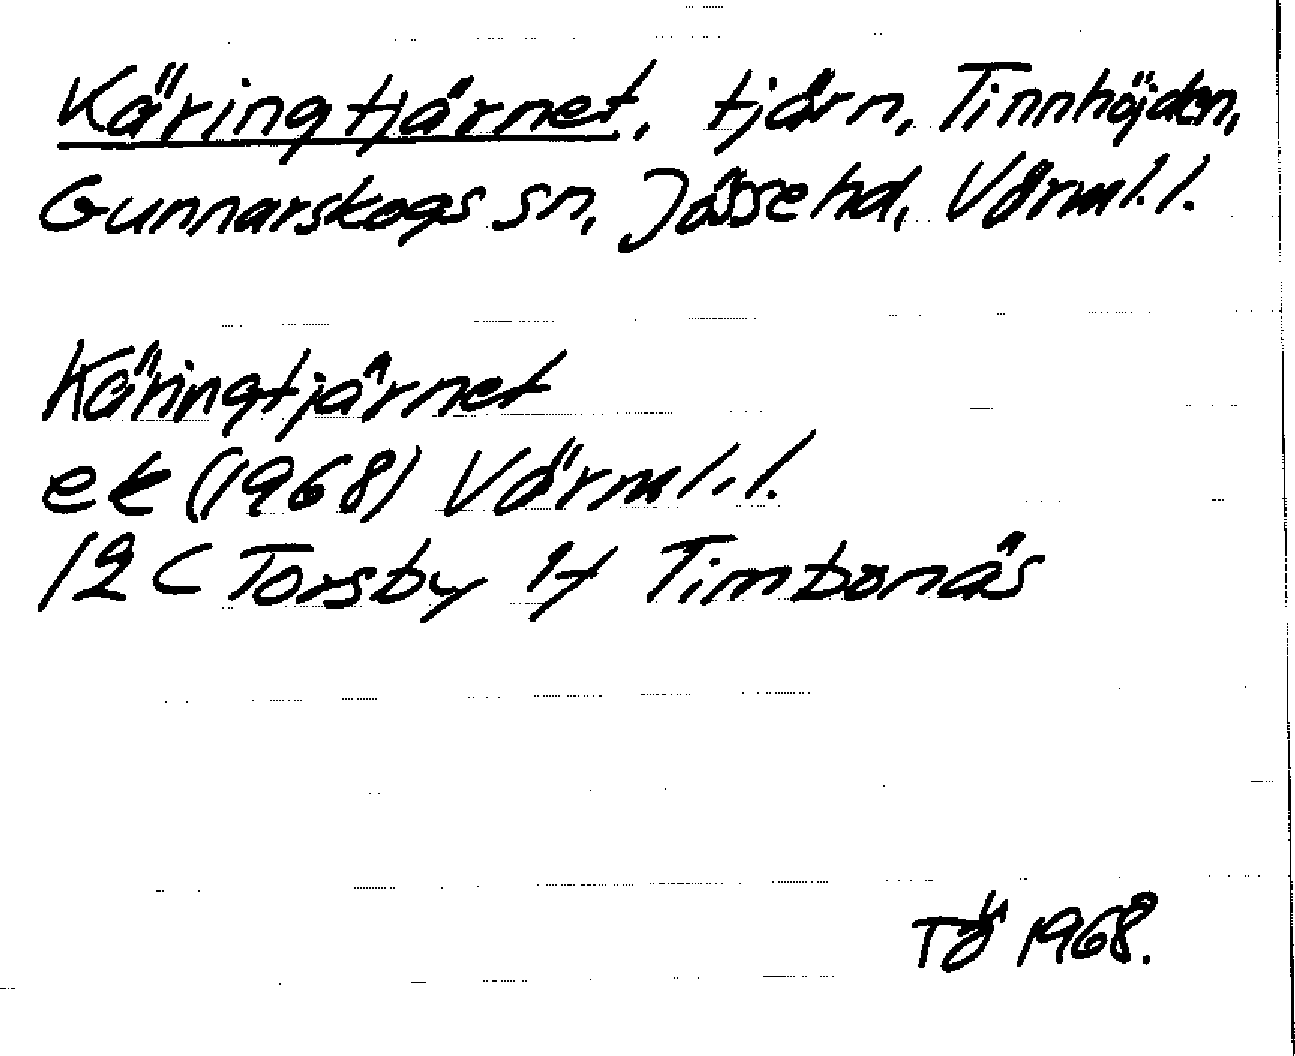 Käringtjärnet, tjärn, Tinnhöjden,
Gunnarskogs sn, Jösse hd, Värml. l.
Käringtjärnet
ek (1968) Värml. l.
12 C Torsby Timbonäs
TÖ 1968.